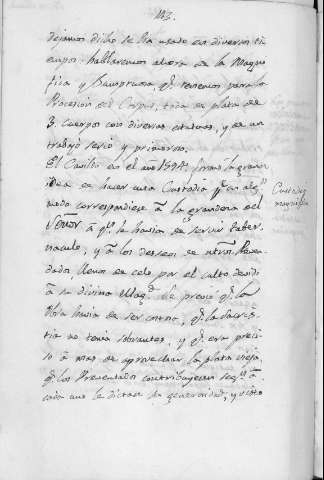 113.
dejamos dicho se han usado en diversos ti
empos: hablaremos ahora de la Magni
fica y Sumptuosa q.e tenemos para la
Procesion del Corpus, toda de plata de
3. Cuerpos con diversas estatuas, y de un
trabajo serio y primoroso.
El Cavildo en el año formó la grande
idea de hacer una Custodia q.e en alg.n
modo correspondiese à la grandeza del
Señor à q.n la havia de servir de taber
naculo, y à los deseos de ntros.
llenos de celo por el culto devido
à su divina Mag.d Se preciò q.e la
obra havia de ser costosa, q.e la Sacris
tia no tenia sobrantes, y q.e era preci
so à mas de aprovechar la plata vieja,
q.e los Prevendados contribuyesen seg.n à
cada uno le dictara su generosidad, y visto
Custodia
magnifica